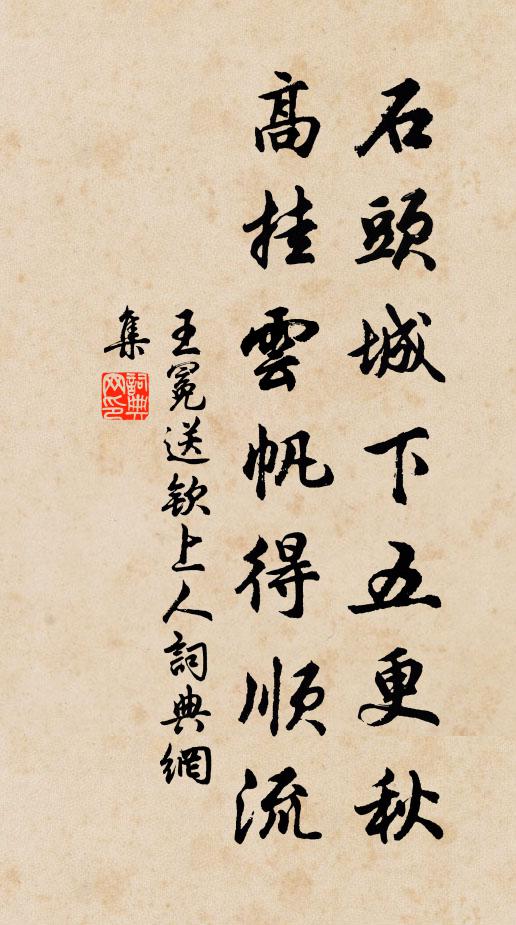 石頭城下五更秋
高挂雲帆得順流
王冕送欽上人詞典網
集
詞典
网印